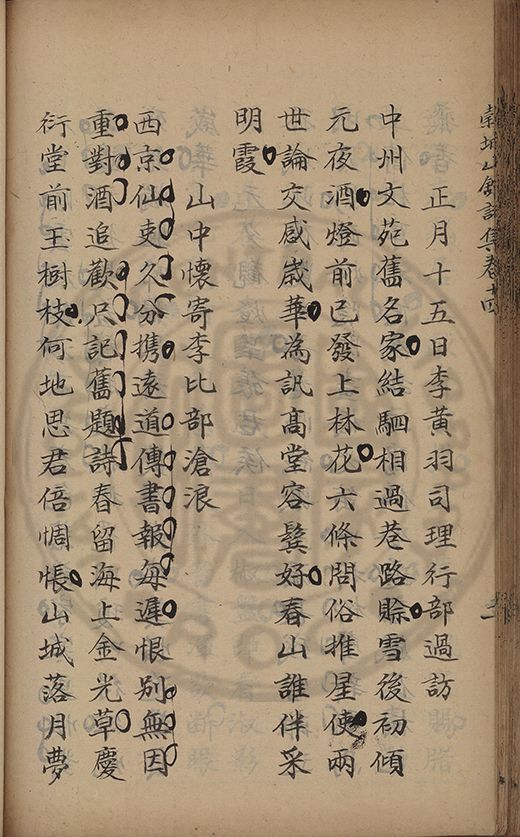 正月十五日李黃羽司理行部過訪
中州文苑舊名家結駟相過巷路賒雪後初傾
元夜酒燈前已發上林花六條問俗推星使兩
世論交感歲華為訊高堂容鬢好春山誰伴采
明霞
山中懷寄李比部滄浪
西京仙吏久分攜遠道傳書報每遲恨別無因
重對酒追歡尺記舊題詩春留海上金光草慶
衍堂前王樹枝何地思君倍惆悵山城落月夢